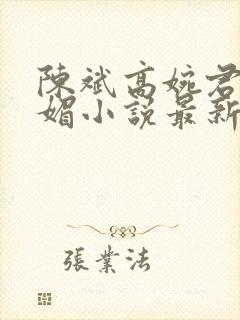 陳斌高婉君
媚小說最新
張業法